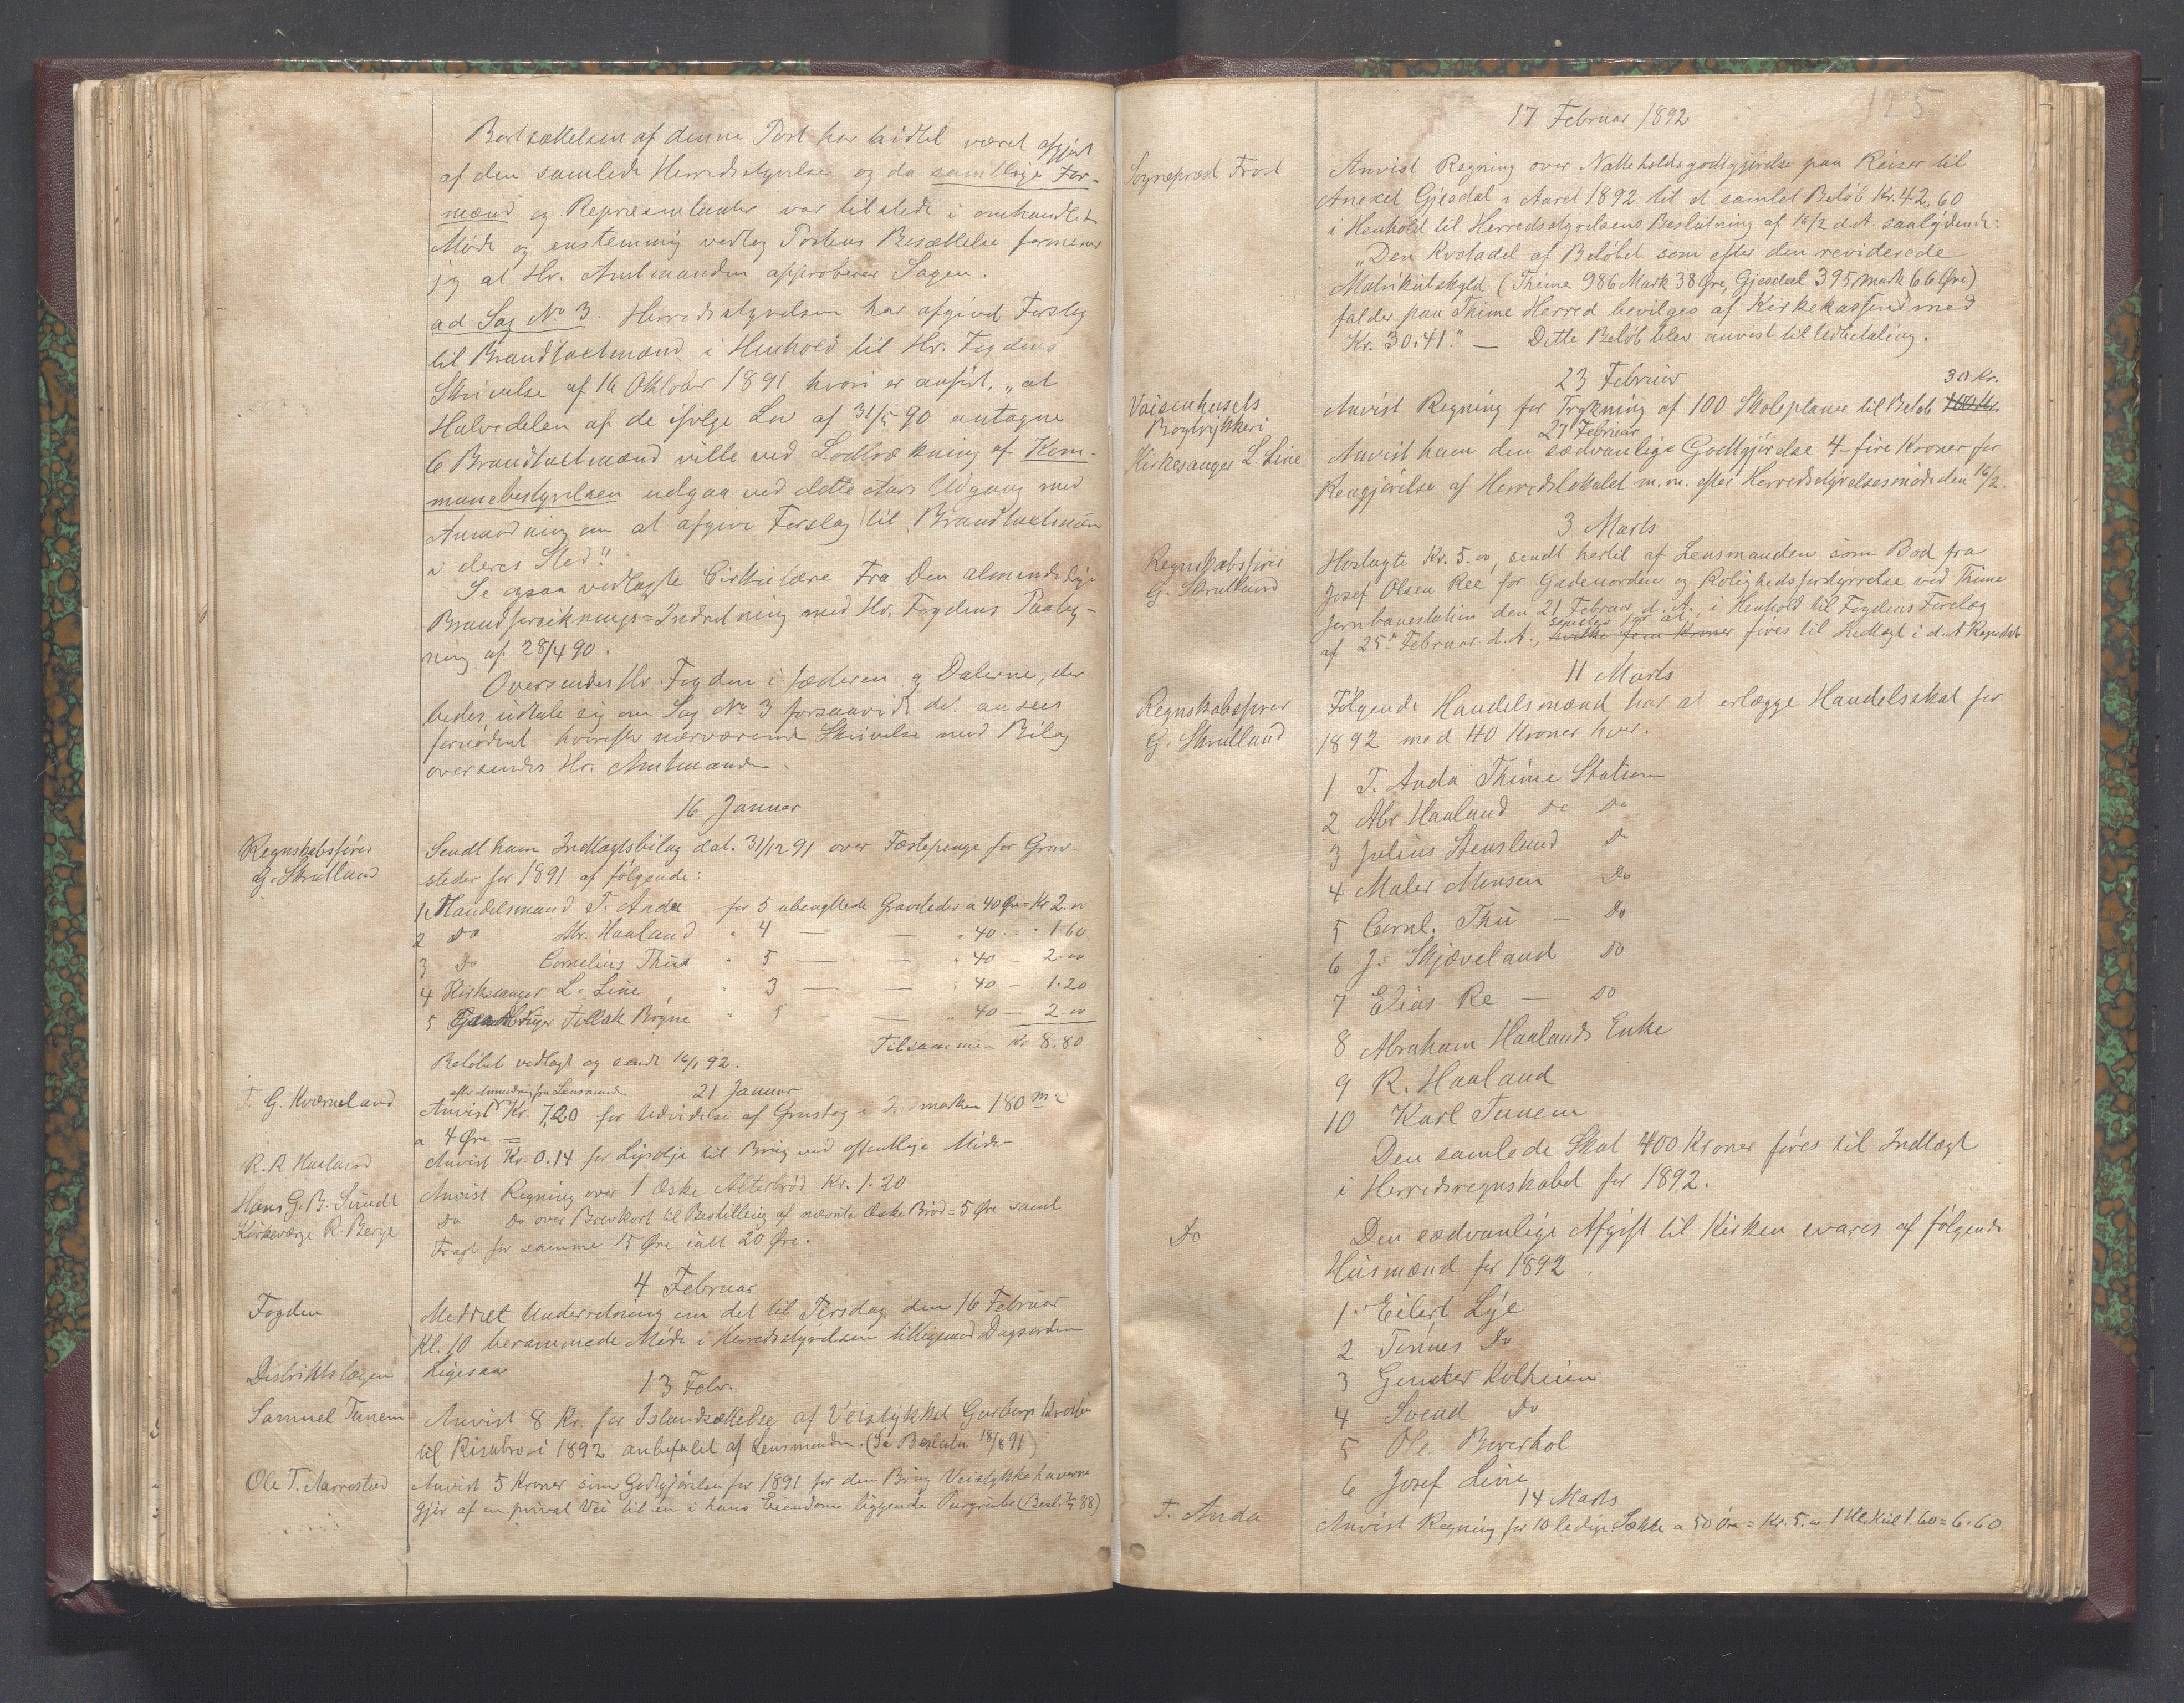 Besættelsen af denne Post har hidtil været afgjort
af den samlede Herredsstyrelse og da samtlige For-
mænd og Repræsentanter var tilstede i omhandlet
Møde og enstemmig vedtog Postens Besættelse formener
jeg at Hr. Amtmanden approberer Sagen.
ad Sag No 3. Herredsstyrelsen har afgivet Forslag
til Brandtaxtmænd i Henhold til Hr. Fogdens
Skrivelse af 16 Oktober 1891 hvori er anført, „at
Halvedelen af de ifølge Lov af 31/5 90 antagne
6 Brandtaxtmænd ville ved Lodtrækning af Kom-
munebestyrelsen udgaa ved dette Aars Udgang med
Anmodning om at afgive Forslag til Brandtaxtmæn
i deres Sted".
Se ogsaa vedlagte Cirkulære Fra Den almindelige
Brandforsikrings=Indretning med Hr. Fogdens Paateg-
ning af 28/4 90.
Oversendes Hr. Fogden i Jæderen og Dalerne, der
bedes udtale sig om Sag No 3 forsaavidt det ansees
fornødent hvorefter nærværende Skrivelse med Bilag
oversendes Hr. Amtmanden.
16 Januar
Regnskabsfører
G. Skrudland
Sendt ham Indtægtsbilag dat. 31/12 91 over Fæstepenge for Grav-
steder for 1891 af følgende:
1 Handelsmand T. Anda for 5 ubenyttede Gravsteder a 40 Øre = Kr 2.00
2 Do Abr. Haaland " 4 — — " 40 " " 1.60
3 Do Cornelius Thu " 5 — — " 40 — 2.00
4 Kirkesanger L. Line " 3 — — " 40 — 1.20
5 Tollak Bryne " 5 — " 40 — 2.00
Tilsammen Kr 8.80
Beløbet vedlagt og sendt 16/1 92.
21 Januar
T. G. Kværneland
efter Anmodning fra Lensmanden
Anvist Kr. 7,20 for Udvidelse af Grustag i marken 180 m2
a 4 Øre =
R. R. Haaland
Anvist Kr. 0.14 for Lysolje til Brug ved offentlige Møder
Hans G. B. Sundt
Anvist Regning over 1 Æske Alterbrød Kr. 1.20
Kirkeværge R. Berge
Do Do over Brevkort til Bestilling af nævnte Æske Brød = 5 Øre samt
Fragt for samme 15 Øre ialt 20 Øre.
4 Februar
Fogden
Meddelt Underretning om det til Tirsdag den 16 Februar
Kl. 10 berammede Møde i Herredsstyrelsen tilligemed Dagsorden
Distriktslægen
Ligesaa
13 Febr.
Samuel Tunem
Anvist 8 Kr. for Istandsættelse af Veistykket
til Risabro i 1892 anbefalet af Lensmanden. (Se Beslutn. 18/8 91)
Ole T. Aarrestad
Anvist 5 Kroner som Godtgjørelse for 1891 for den Brug Veistykkehaverne
gjør af en privat Vei til en i hans Eiendom liggende Purgrube (Besl. 88)
125
17 Februar 1892
Sogneprest Frost
Anvist Regning over Natteholdsgodtgjørelse paa Reiser til
Anexet Gjesdal i Aaret 1892 til et samlet Beløb Kr. 42,60
i Henhold til Herredsstyrelsens Beslutning af 16/2 d.A. saalydende:
„Den Kvotadel af Beløbet som efter den reviderede
Matrikulskyld (Thime 986 Mark 38 Øre, Gjesdal 395 Mark 66 Øre)
falder paa Thime Herred bevilges af Kirkekassen med
Kr. 30.41." — Dette Beløb blev anvist til Udbetaling.
23 Februar
Vaisenhusets
Bogtrykkeri
30 Kr.
Anvist Regning for Trykning af 100 Skoleplaner til Beløb 100 Kr.
27 Februar
Kirkesanger L. Line
Anvist ham den sædvanlige Godtgjørelse 4 – fire Kroner for
Rengjørelse af Herredslokalet m.m. efter Herredsstyrelsesmøde den 16/2.
3 Marts
Regnskabsfører
G. Skrudland
Hoslagte Kr. 5.00, sendt hertil af Lensmanden som Bod fra
Josef Olsen Ree for Gadeuorden og Rolighedsforstyrrelse ved Thime
Jernbanestation den 21 Februar d. A., i Henhold til Fogdens Forelæg
af 25de Februar d. A., sendes for at hvilke fem Kroner føres til Indtægt i d. A Regnskab
11 Marts
Regnskabsfører
G. Skrudland
Følgende Handelsmænd har at erlægge Handelsskat for
1892 med 40 Kroner hver.
1 T. Anda Thime Station
2 Abr Haaland Do Do
3 Julius Stensland Do
4 Maler Monsen Do
5 Cornl. Thu — Do
6 J. Skjæveland Do
7 Elias Re — Do
8 Abraham Haalands Enke
9 R. Haaland
10 Karl Tunem
Den samlede Skat 400 Kroner føres til Indtægt
i Herredsregnskabet for 1892.
Do
Den sædvanlige Afgift til Kirken svares af følgende
Husmænd for 1892.
1. Eilert Lye
2 Tønnes Do
3 Gunder Holheim
4 Svend Do
5 Ole Beverhol
6 Josef Line
14 Marts
T. Anda
Anvist Regning for 10 ledige Sække a 50 Øre = Kr. 5.00 1 Hl. Kul 1.60 = 6.60